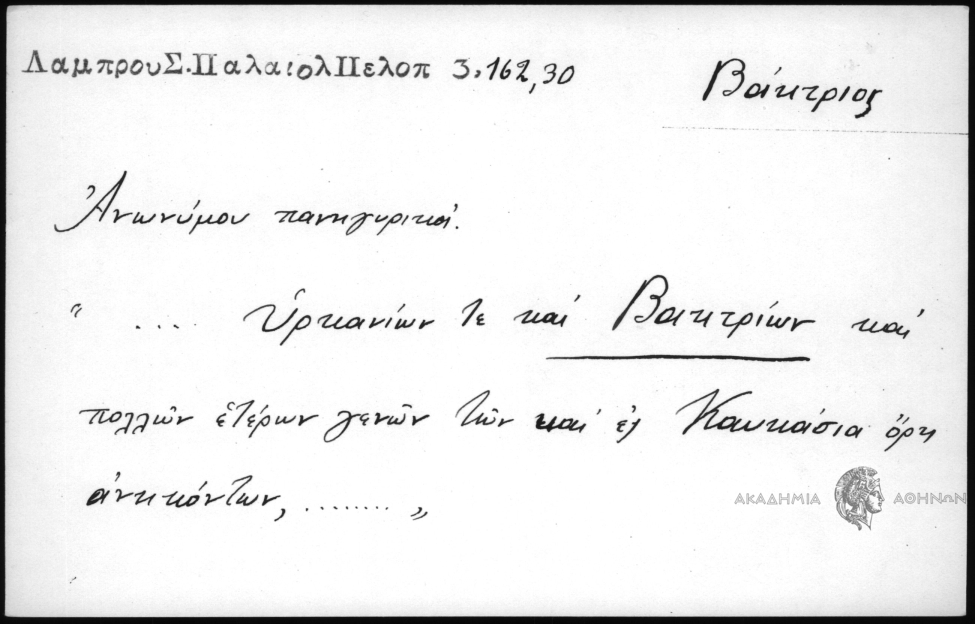 ΛαμπρουΣ.ΠαλαιολΠελοπ 3,162,30
Βάκτριος
Ἀνωνύμου πανηγυρικοί.
“ .... Ὑρκανίων τε καί Βακτρίων καί
πολλῶν ἑτέρων γενῶν τῶν καί ἐς Καυκάσια ὄρη
ἀνηκόντων, ........ „
ΑΚΑΔΗΜΙΑ ΑΘΗΝΩΝ